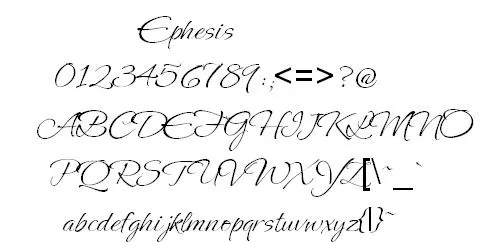 Ephesis
0123456789:;<=>?@
ABCDEFGHIJKLMNO
PQRSTUVWXYZ[\^_`
abcdefghijklmnopqrstuvwxyz{|}~